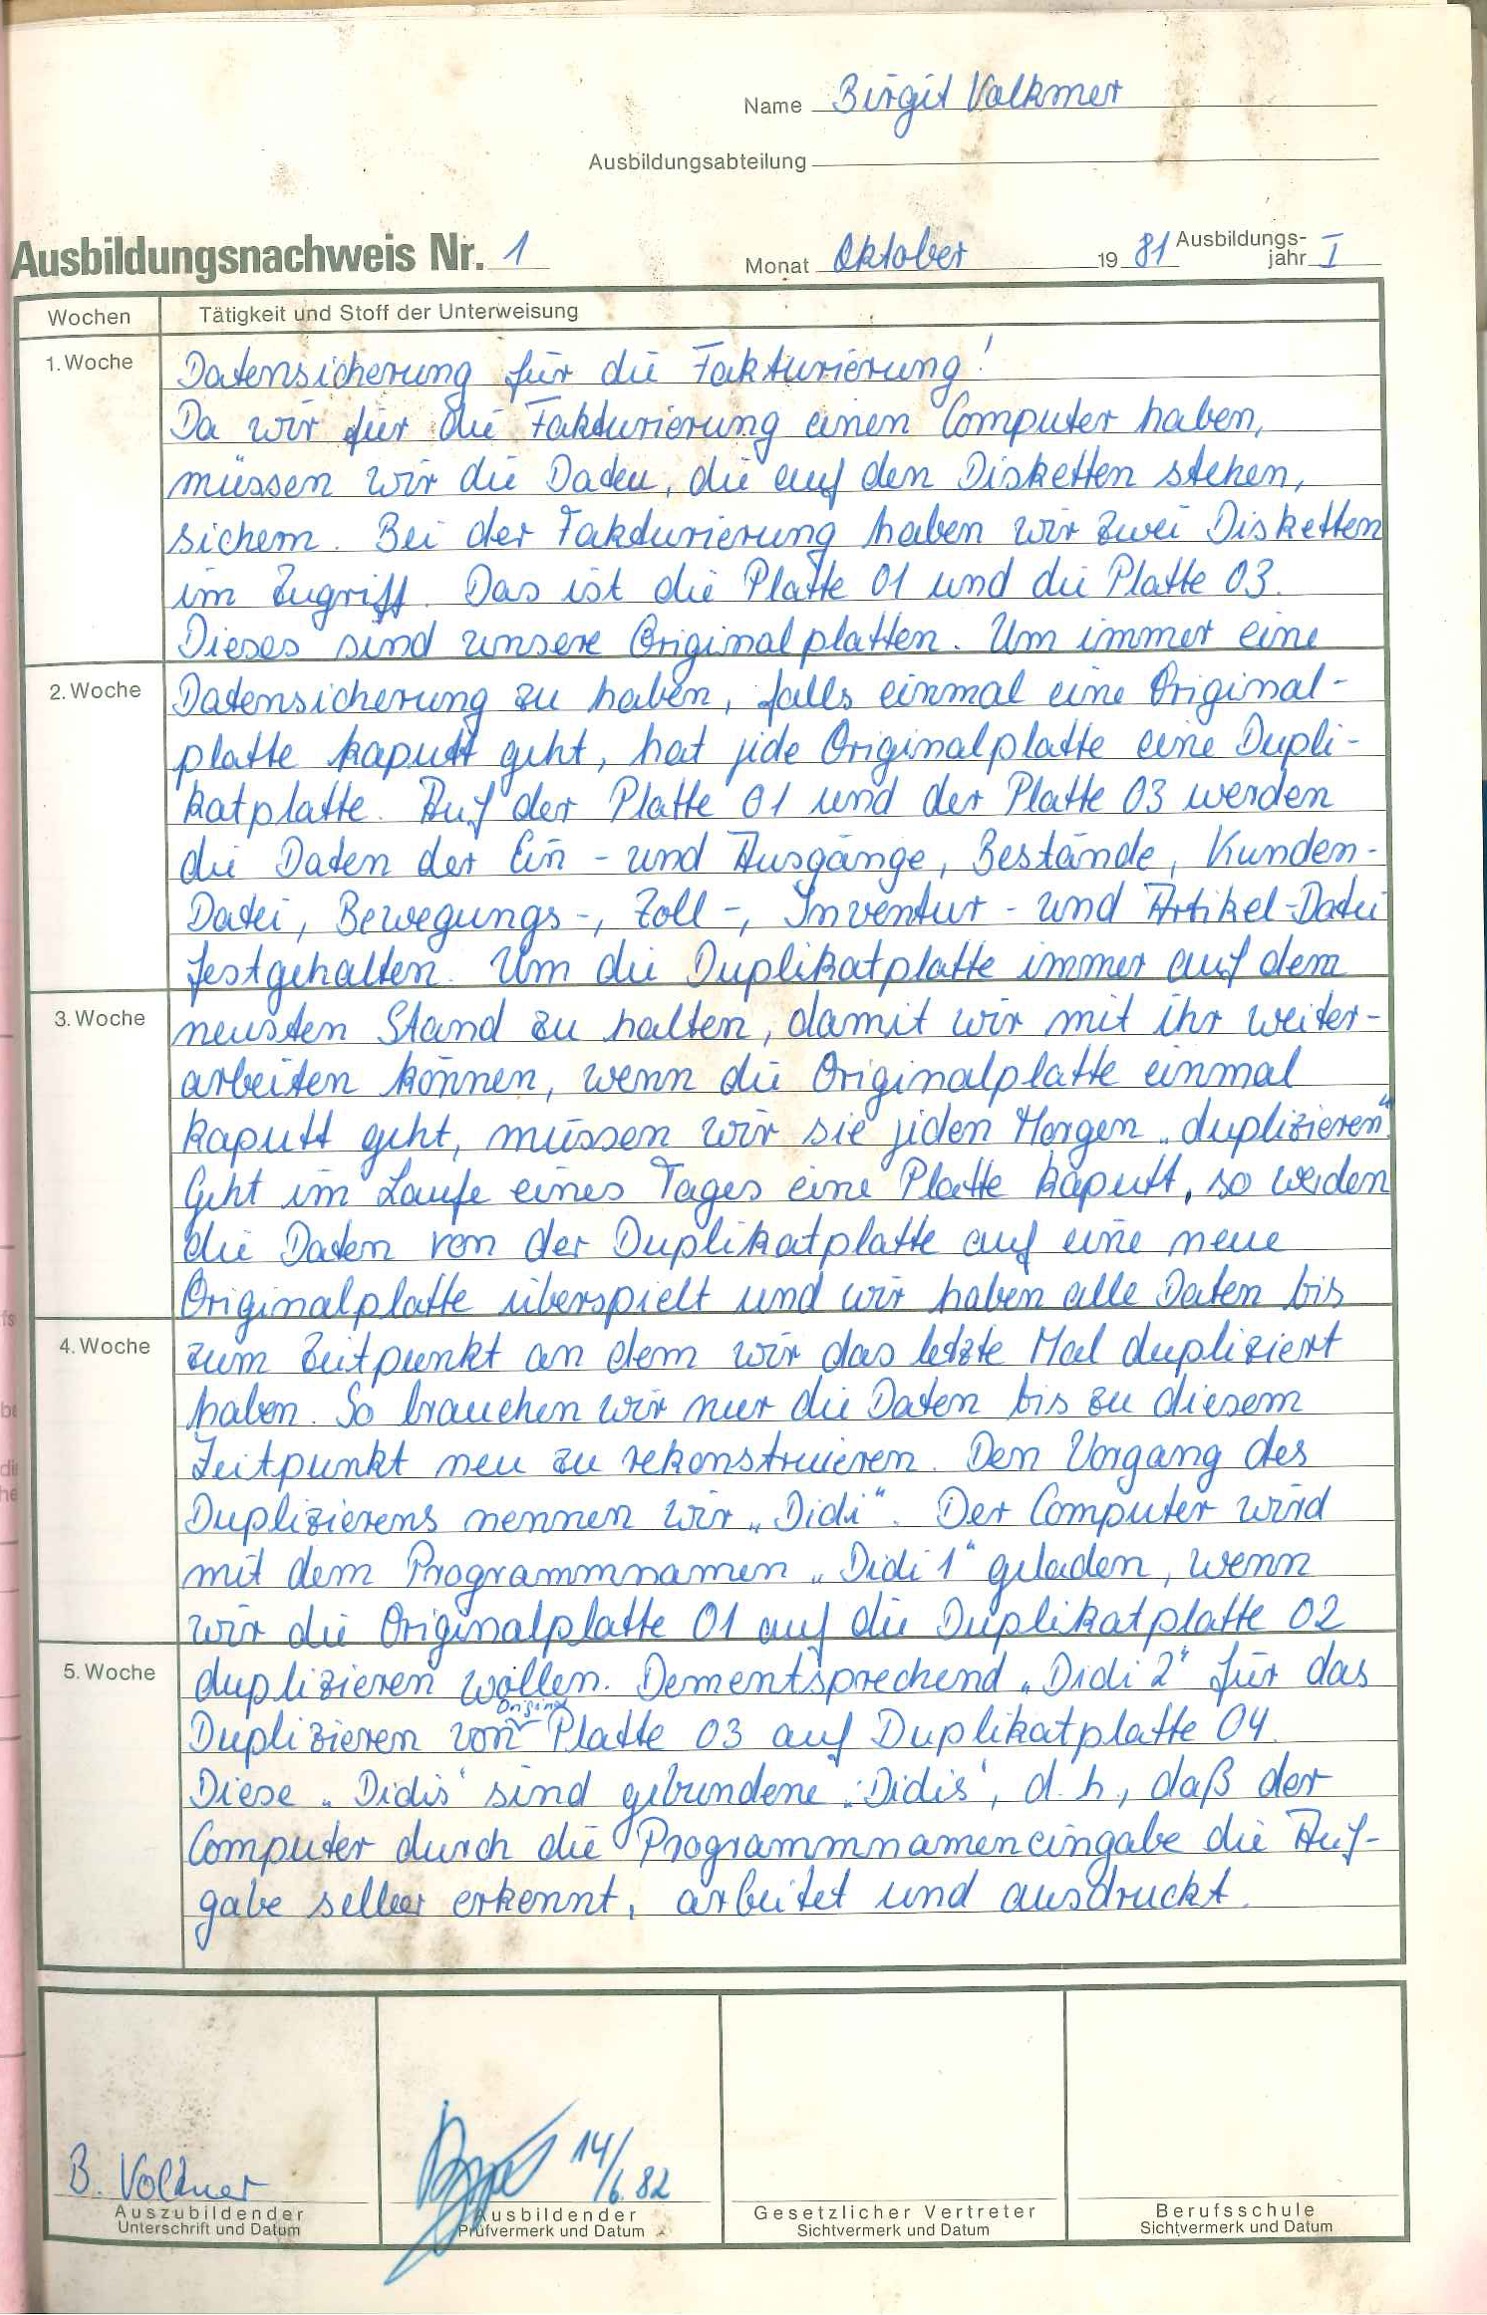 Name Birgit Volkmer
Ausbildungsabteilung
Ausbildungsnachweis Nr. 1 Monat Oktober 1981 Ausbildungs-
jahr I
Wochen Tätigkeit und Stoff der Unterweisung
1. Woche Datensicherung für die Fakturierung!
Da wir für die Fakturierung einen Computer haben,
müssen wir die Daten, die auf den Disketten stehen,
sichern. Bei der Fakturierung haben wir zwei Disketten
im Zugriff. Das ist die Platte 01 und die Platte 03.
Dieses sind unsere Originalplatten. Um immer eine
2. Woche Datensicherung zu haben, falls einmal eine Original-
platte kaputt geht, hat jede Originalplatte eine Dupli-
katplatte. Auf der Platte 01 und der Platte 03 werden
die Daten der Ein- und Ausgänge, Bestände, Kunden-
Datei, Bewegungs-, Zoll-, Inventur- und Artikel-Datei
festgehalten. Um die Duplikatplatte immer auf dem
3. Woche neusten Stand zu halten, damit wir mit ihr weiter-
arbeiten können, wenn die Originalplatte einmal
kaputt geht, müssen wir sie jeden Morgen „duplizieren".
Geht im Laufe eines Tages eine Platte kaputt, so werden
die Daten von der Duplikatplatte auf eine neue
Originalplatte überspielt und wir haben alle Daten bis
4. Woche zum Zeitpunkt an dem wir das letzte Mal dupliziert
haben. So brauchen wir nur die Daten bis zu diesem
Zeitpunkt neu zu rekonstruieren. Den Vorgang des
Duplizierens nennen wir „Didi". Der Computer wird
mit dem Programmnamen „Didi 1" geladen, wenn
wir die Originalplatte 01 auf die Duplikatplatte 02
5. Woche duplizieren wollen. Dementsprechend „Didi 2" für das
Duplizieren von Original Platte 03 auf Duplikatplatte 04.
Diese „Didis" sind gebundene „Didis", d. h., daß der
Computer durch die Programmnameneingabe die Auf-
gabe selber erkennt, arbeitet und ausdruckt.
B. Volkmer 14/6.82
Auszubildender
Unterschrift und Datum
Ausbildender
Prüfvermerk und Datum
Gesetzlicher Vertreter
Sichtvermerk und Datum
Berufsschule
Sichtvermerk und Datum